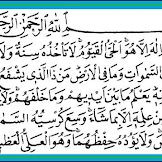 بِسْمِ اللَّهِ الرَّحْمَٰنِ الرَّحِ
لَهَ إِلَّا هُوَ الْحَيُّ الْقَيُّومُ لَا تَأْخُذُهُ سِنَةٌ وَلَا
السَّمَٰوَاتِ وَمَا فِي الْأَرْضِ مَن ذَا الَّذِي يَشْفَعُ
يَعْلَمُ مَا بَيْنَ أَيْدِيهِمْ وَمَا خَلْفَهُمْ وَلَا
مِّنْ عِلْمِهِ إِلَّا بِمَا شَاءَ وَسِعَ كُرْسِيُّهُ السَّمَ
وَلَا يَئُودُهُ حِفْظُهُمَا وَهُوَ الْعَلِيُّ الْعَظِ